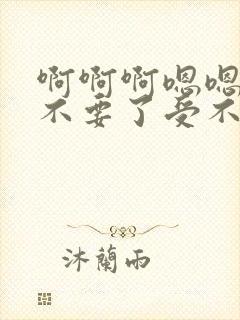 啊啊啊嗯嗯
不要了受不
沐蘭雨